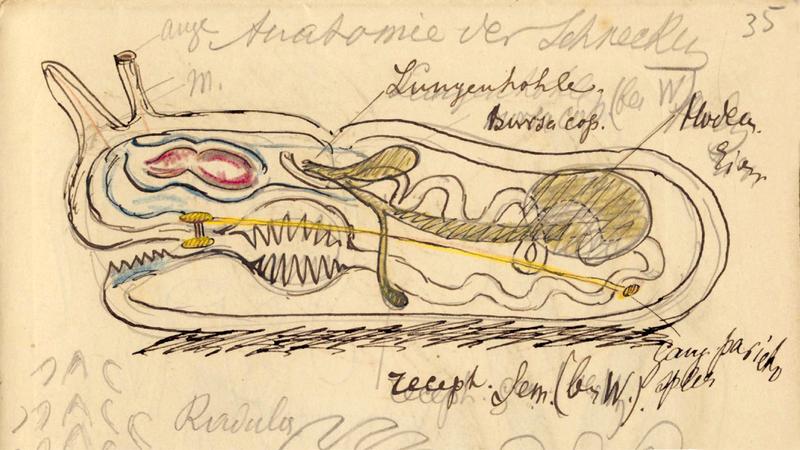 35
auge Anatomie der Schnecken
M.
Lungenhöhle.
(bei W)
Bursa cop.
Hoden.
Eier
Gang. parieto
recept. Sem. (bei W.)
Radula